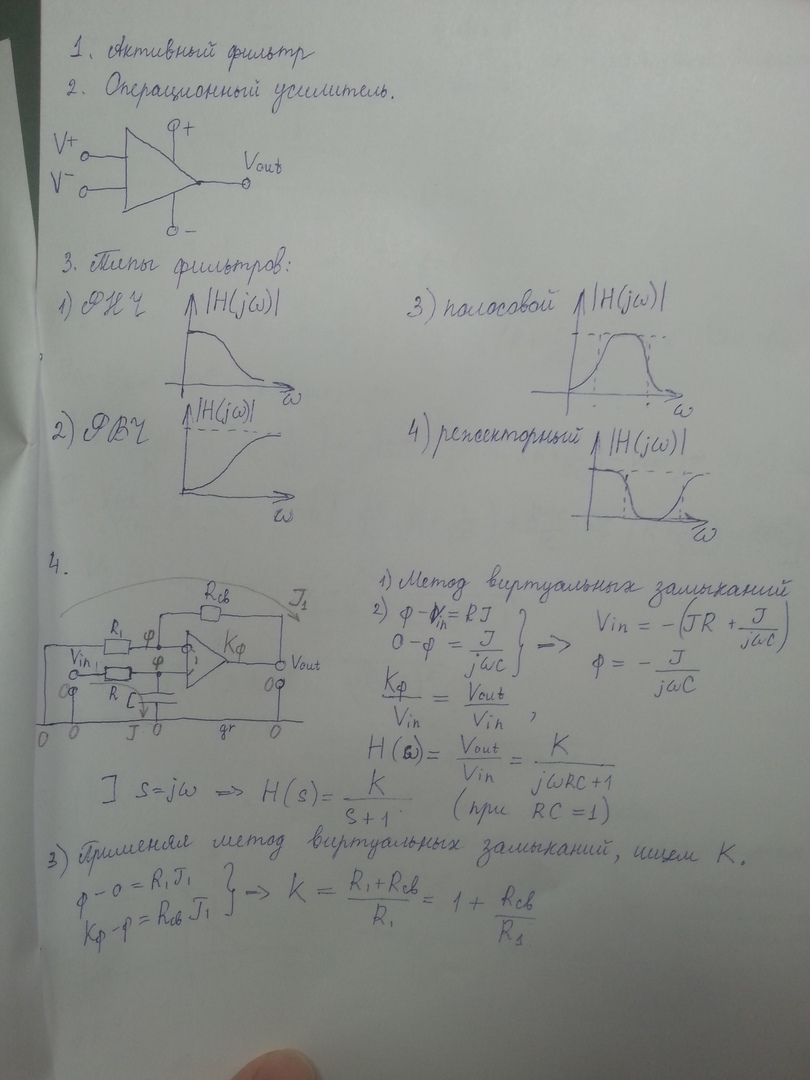 1. Активный фильтр
2. Операционный усилитель.
V+
φ+
V-
Vout
0-
3. Типы фильтров:
1) ФНЧ |H(jω)|
ω
3) полосовой |H(jω)|
ω
2) ФВЧ |H(jω)|
ω
4) режекторный |H(jω)|
ω
4.
Rсв
J₁
R₁ φ Kφ
Vin φ Vout
0 R C 0
0 0 J 0 gr 0
1) Метод виртуальных замыканий
2) φ-Vin = RJ
0-φ = J/jωC } => Vin = -(JR + J/jωC)
φ = - J/jωC
Kφ/Vin = Vout/Vin ,
H(ω) = Vout/Vin = K/jωRC+1
] s=jω => H(s) = K/s+1 (при RC=1)
3) Применяя метод виртуальных замыканий, ищем K.
φ-0 = R₁J₁
Kφ-φ = Rсв J₁ } -> K = R₁+Rсв/R₁ = 1 + Rсв/R₁